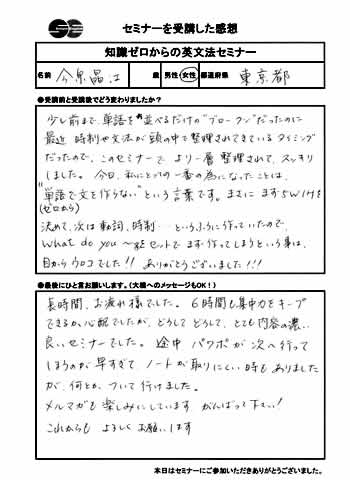 セミナーを受講した感想
知識ゼロからの英文法セミナー
名前 今泉晶江 歳 男性・女性 都道府県 東京都
●受講前と受講後でどう変わりましたか？
少し前まで、単語を並べるだけの"ブロークン"だったのに
最近 時制や文法が頭の中で整理されてきているタイミング
だったので、このセミナーで より一層 整理されて、スッキリ
しました。 今日、私にとっての一番の為になったことは、
"単語で文を作らない"という言葉です。まさに まず5W1Hを
(ゼロから)
決めて、次は動詞、時制… というふうに作っていたので、
What do you 〜をセットで まず 作ってしまうという事は、
目からウロコでした!! ありがとうございました!!!
●最後にひと言お願いします。（大橋へのメッセージもOK！）
長時間、お疲れ様でした。 6時間も集中力をキープ
できるか心配でしたが、どうして どうして、とても内容の濃い、
良いセミナーでした。 途中 パワポが 次へ行って
しまうのが早すぎて ノートが取りにくい時もありました
が、何とか ついて行けました。
メルマガも 楽しみにしています がんばって下さい!
これからも よろしくお願いします
本日はセミナーにご参加いただきありがとうございました。